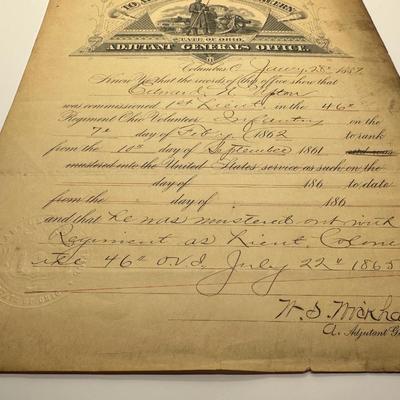 STATE OF OHIO,
ADJUTANT GENERAL'S OFFICE.
Columbus, O. Jany. 28th 1887
Know Ye, that the records of this office show that
Edward N.
was commissioned 1st Lieut. in the 46th
Regiment Ohio Volunteer Infantry on the
7th day of Feby 1862 to rank
from the 10th day of September 1861 and was
mustered into the United States service as such on the
day of 186 to date
from the day of 186
and that he was mustered out with
Regiment as Lieut. Colone
the 46th O.V.I. July 22d 1865
W. S. Wickha
A. Adjutant Ge